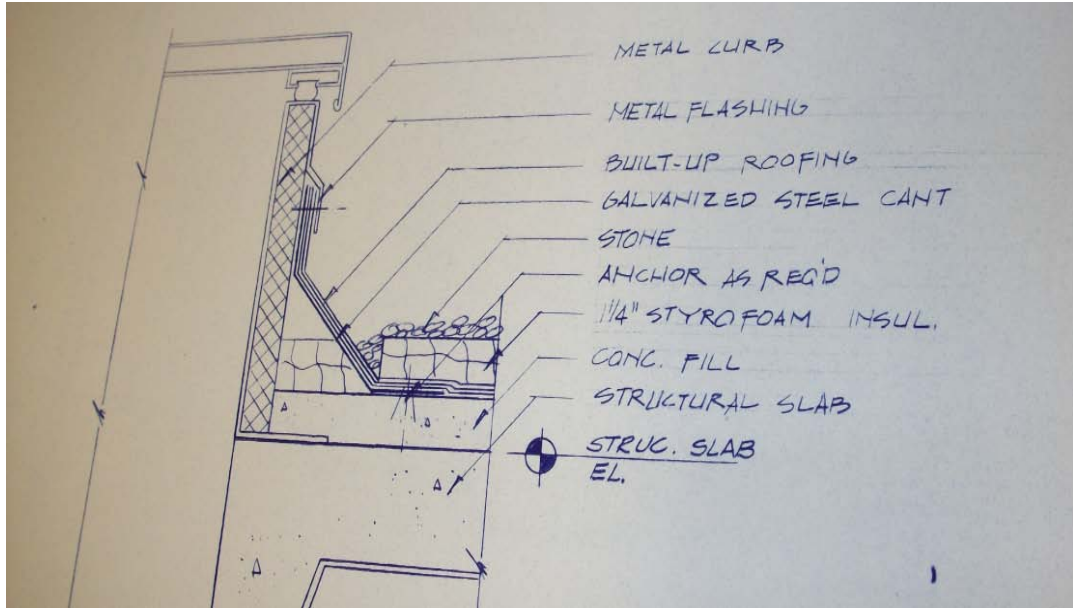 METAL CURB
METAL FLASHING
BUILT-UP ROOFING
GALVANIZED STEEL CANT
STONE
ANCHOR AS REQ'D
1 1/4" STYROFOAM INSUL.
CONC. FILL
STRUCTURAL SLAB
STRUC. SLAB
EL.